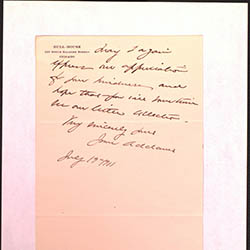 HULL-HOUSE
CHICAGO
May I again
express our appreciation
of your kindness, and
hope that for
in our letter collection.
Very sincerely yours
Jane Addams
July 19